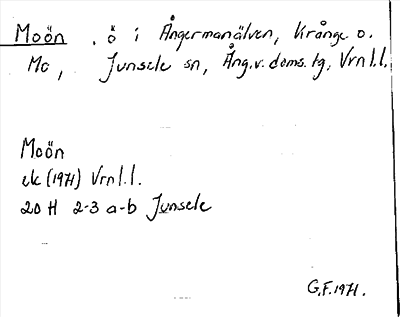 Moön . ö i Ångermanälven, Krånge o.
Mo, Junsele sn, Ång. v. doms. tg, Vrnl.l.
Moön
ek (1971) Vrnl.l.
20 H 2-3 a-b Junsele
G.F. 1971.